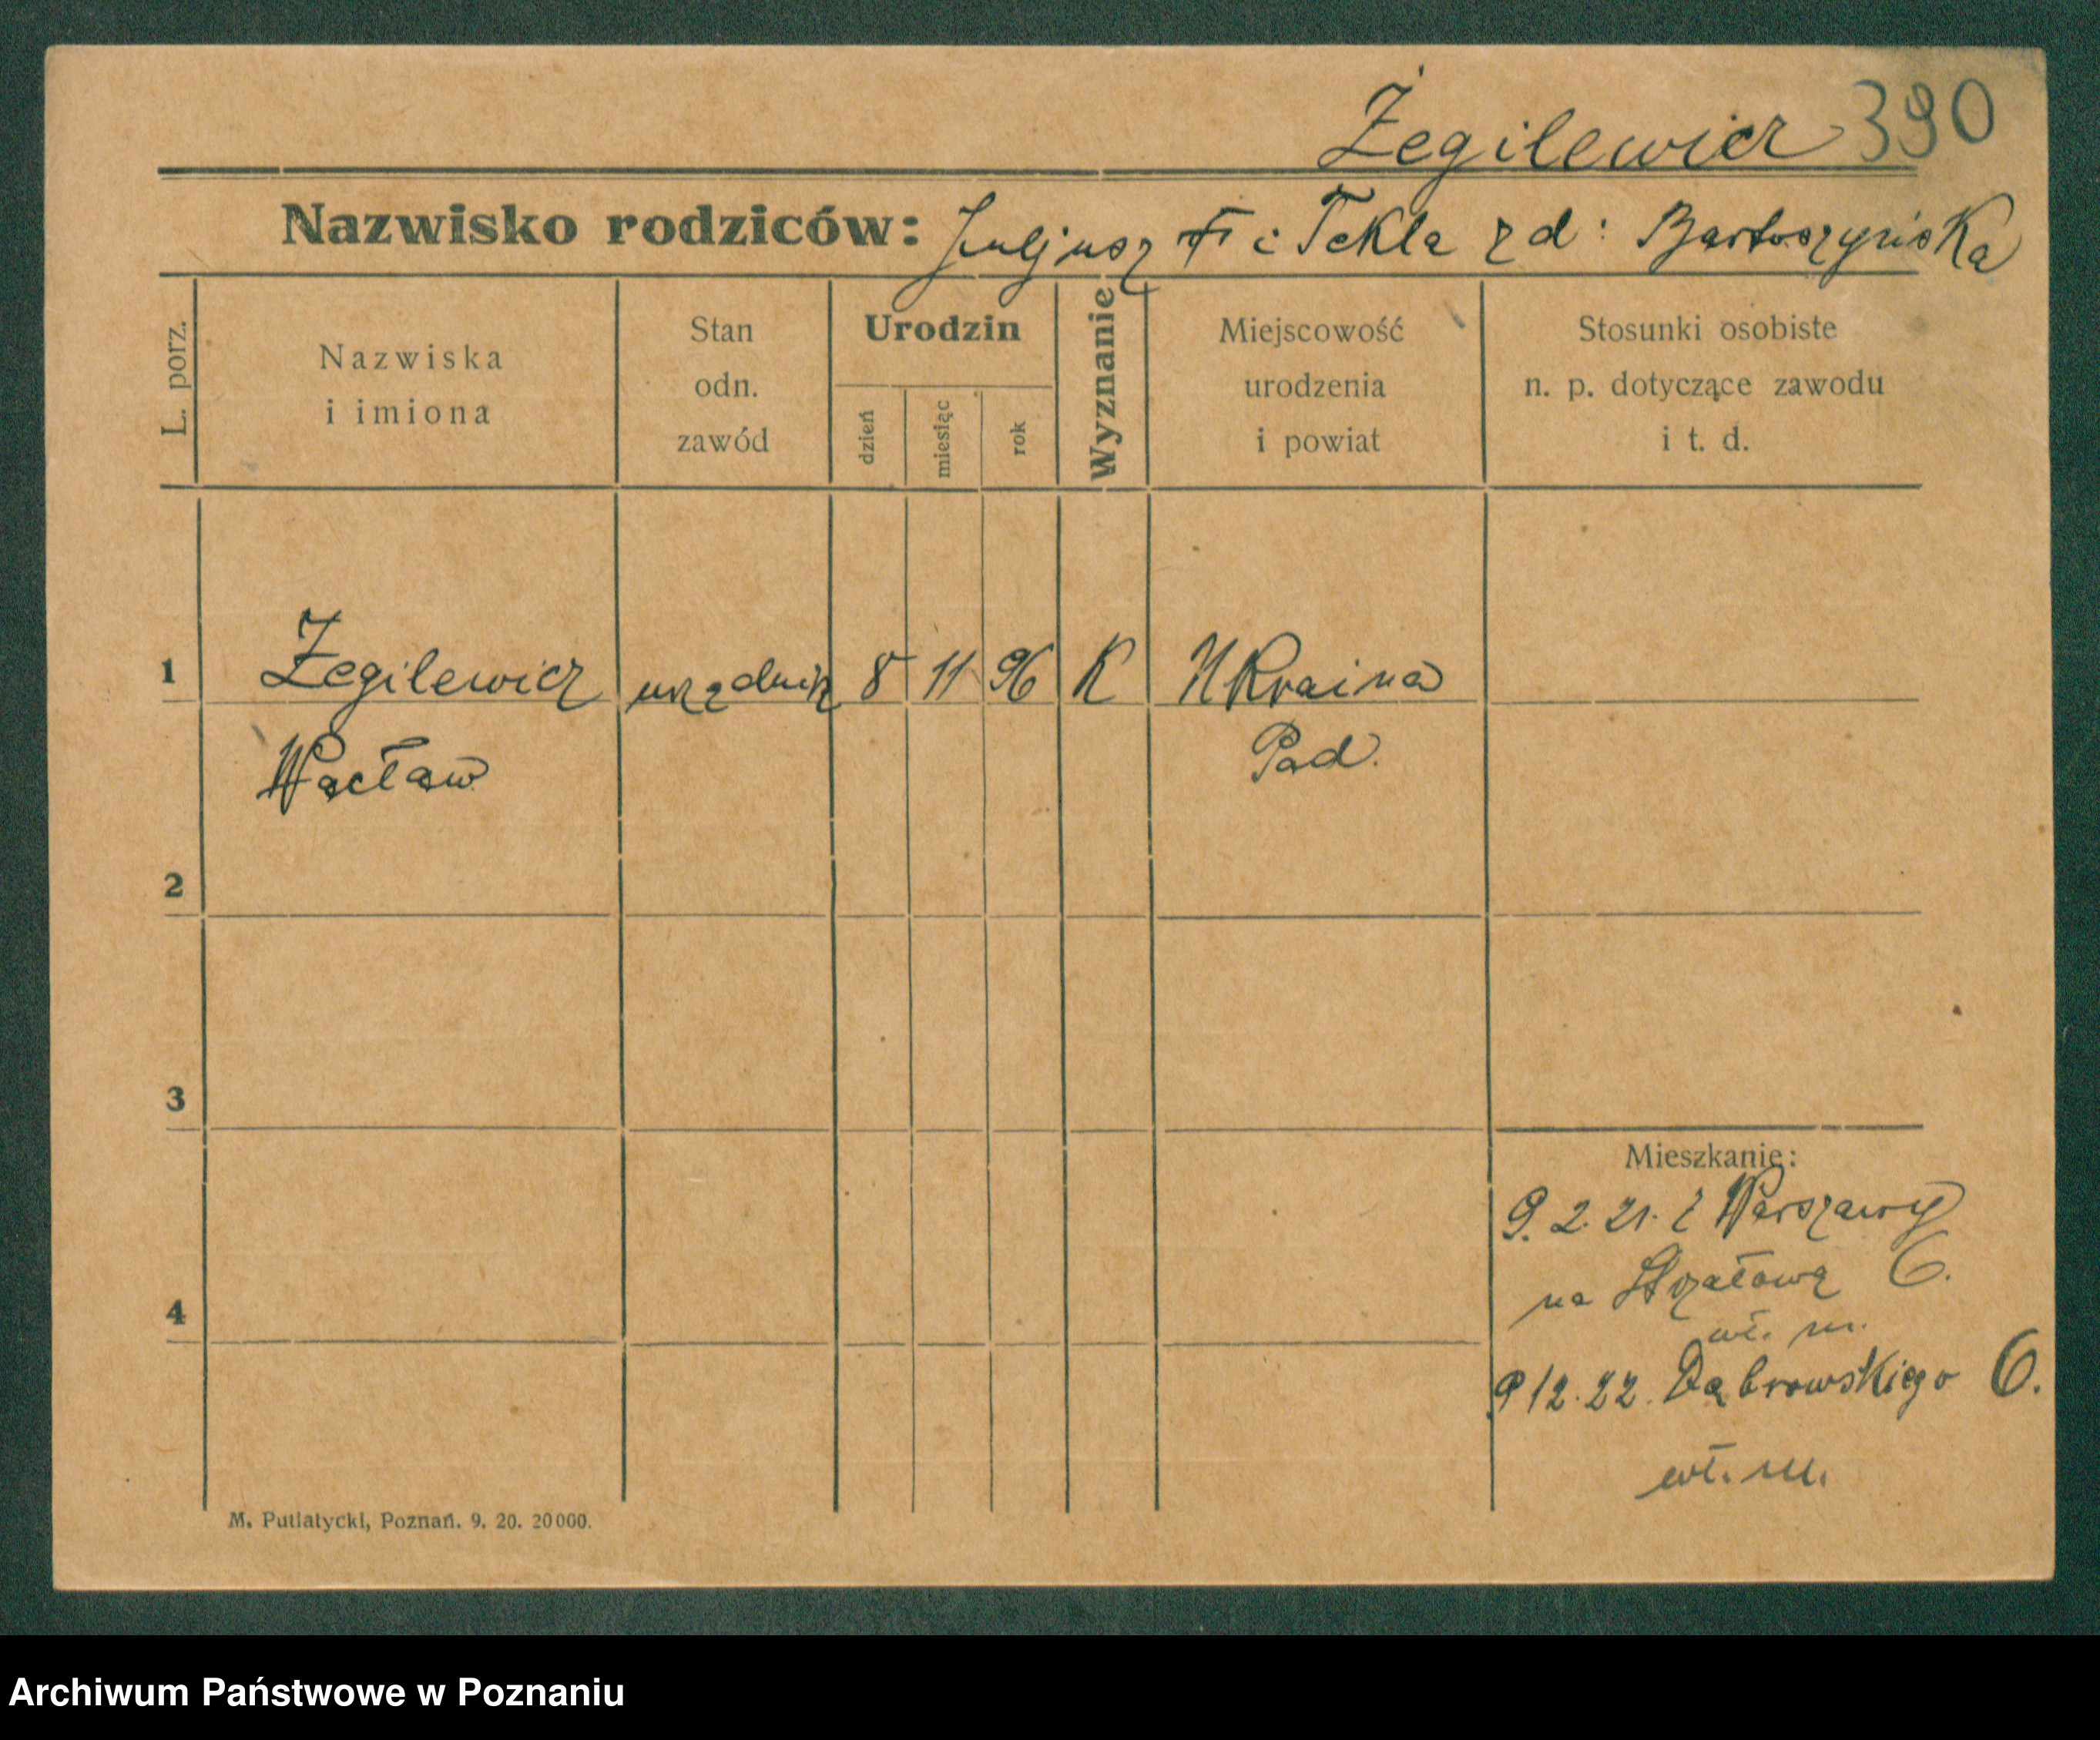 Żegilewicz 390
Nazwisko rodziców: Juljusz i Tekla z d: Bartoszyńska
L. porz.
Nazwiska
i imiona
Stan
odn.
zawód
Urodzin
dzień
miesiąc
rok
Wyznanie
Miejscowość
urodzenia
i powiat
Stosunki osobiste
n. p. dotyczące zawodu
i t. d.
1 Żegilewicz urzędnik 8 11 96 K Ukraina
Wacław Pod.
2
3
4
Mieszkanie:
9. 2. 21. z Warszawy
na Strzałową 6.
wł. m.
9 12. 22. Dąbrowskiego 6.
wł. m.
M. Putiatycki, Poznań. 9. 20. 20000.
Archiwum Państwowe w Poznaniu